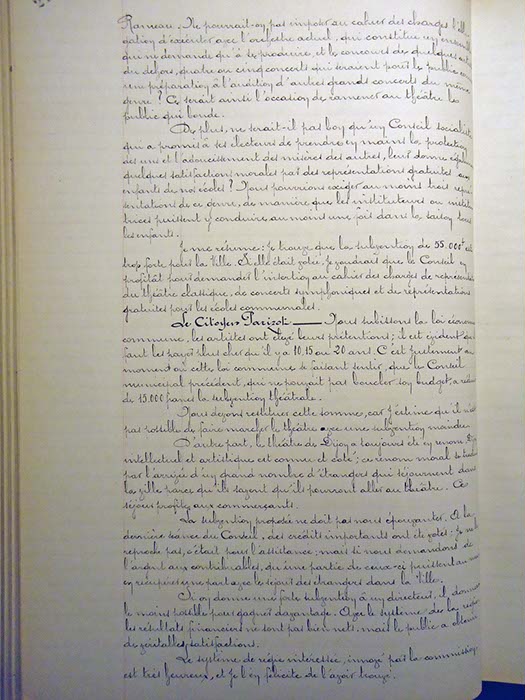 Rameau. Ne pourrait-on pas imposer au cahier des charges l'obli-
gation d'exécuter avec l'orchestre actuel, qui constitue un ensemble
qui ne demande qu'à se produire, et le concours de quelques
du dehors, quatre ou cinq concerts qui seraient pour le public
une préparation à l'audition d'autres grands concerts du même
genre ? Ce serait ainsi l'occasion de ramener au théâtre le
public qui boude.
De plus, ne serait-il pas bon qu'un Conseil socialiste
qui a promis à ses électeurs de prendre en mains la protection
des uns et l'adoucissement des misères des autres, leur donne
quelques satisfactions morales par des représentations gratuites aux
enfants de nos écoles ? Nous pourrions exiger au moins trois repré-
sentations de ce genre, de manière que les instituteurs ou institu-
trices puissent y conduire au moins une fois dans la saison tous
les enfants.
Je me résume : je trouve que la subvention de 55.000f est
trop forte pour la Ville. Si elle était votée, je voudrais que le Conseil en
profitât pour demander l'insertion au cahier des charges de représentations
du théâtre classique, de concerts symphoniques et de représentations
gratuites pour les écoles communales.
Le Citoyen Parizot — Nous subissons la loi économique
commune, les artistes ont élevé leurs prétentions ; il est évident qu'il
faut les payer plus cher qu'il y a 10, 15 ou 20 ans. C'est justement au
moment où cette loi commune se faisait sentir, que le Conseil
municipal précédent, qui ne pouvait pas boucler son budget, a réduit
de 15.000 francs la subvention théâtrale.
Nous devons restituer cette somme, car j'estime qu'il n'est
pas possible de faire marcher le théâtre avec une subvention moindre.
D'autre part, le théâtre de Dijon a toujours été en renom. Dijon
intellectuel et artistique est connu et coté ; ce renom moral se traduit
par l'arrivée d'un grand nombre d'étrangers qui séjournent dans
la ville parce qu'ils savent qu'ils pourront aller au théâtre. Ce
séjour profite aux commerçants.
La subvention proposée ne doit pas nous épouvanter. A la
dernière séance du Conseil, des crédits importants ont été votés : je ne le
reproche pas, c'était pour l'assistance ; mais si nous demandons de
l'argent aux contribuables, qu'une partie de ceux-ci puissent au moins
en récupérer une part avec le séjour des étrangers dans la Ville.
Si on donne une forte subvention à un directeur, il donnera
le moins possible pour gagner davantage. Avec le système de la régie
les résultats financiers ne sont pas bien nets, mais le public a obtenu
de véritables satisfactions.
Le système de régie intéressée, innové par la commission
est très heureux, et je l'en félicite de l'avoir trouvé.